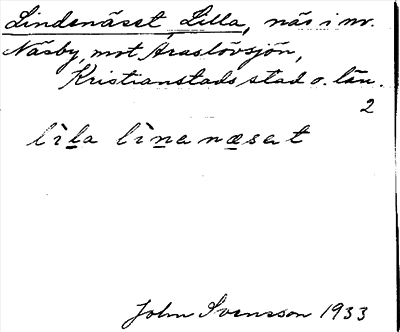 Lindenäset, Lilla, näs i nv.
Näsby, mot Araslövsjön,
Kristianstads stad o. län.
2
lìla lìnenæset
John Svensson 1933